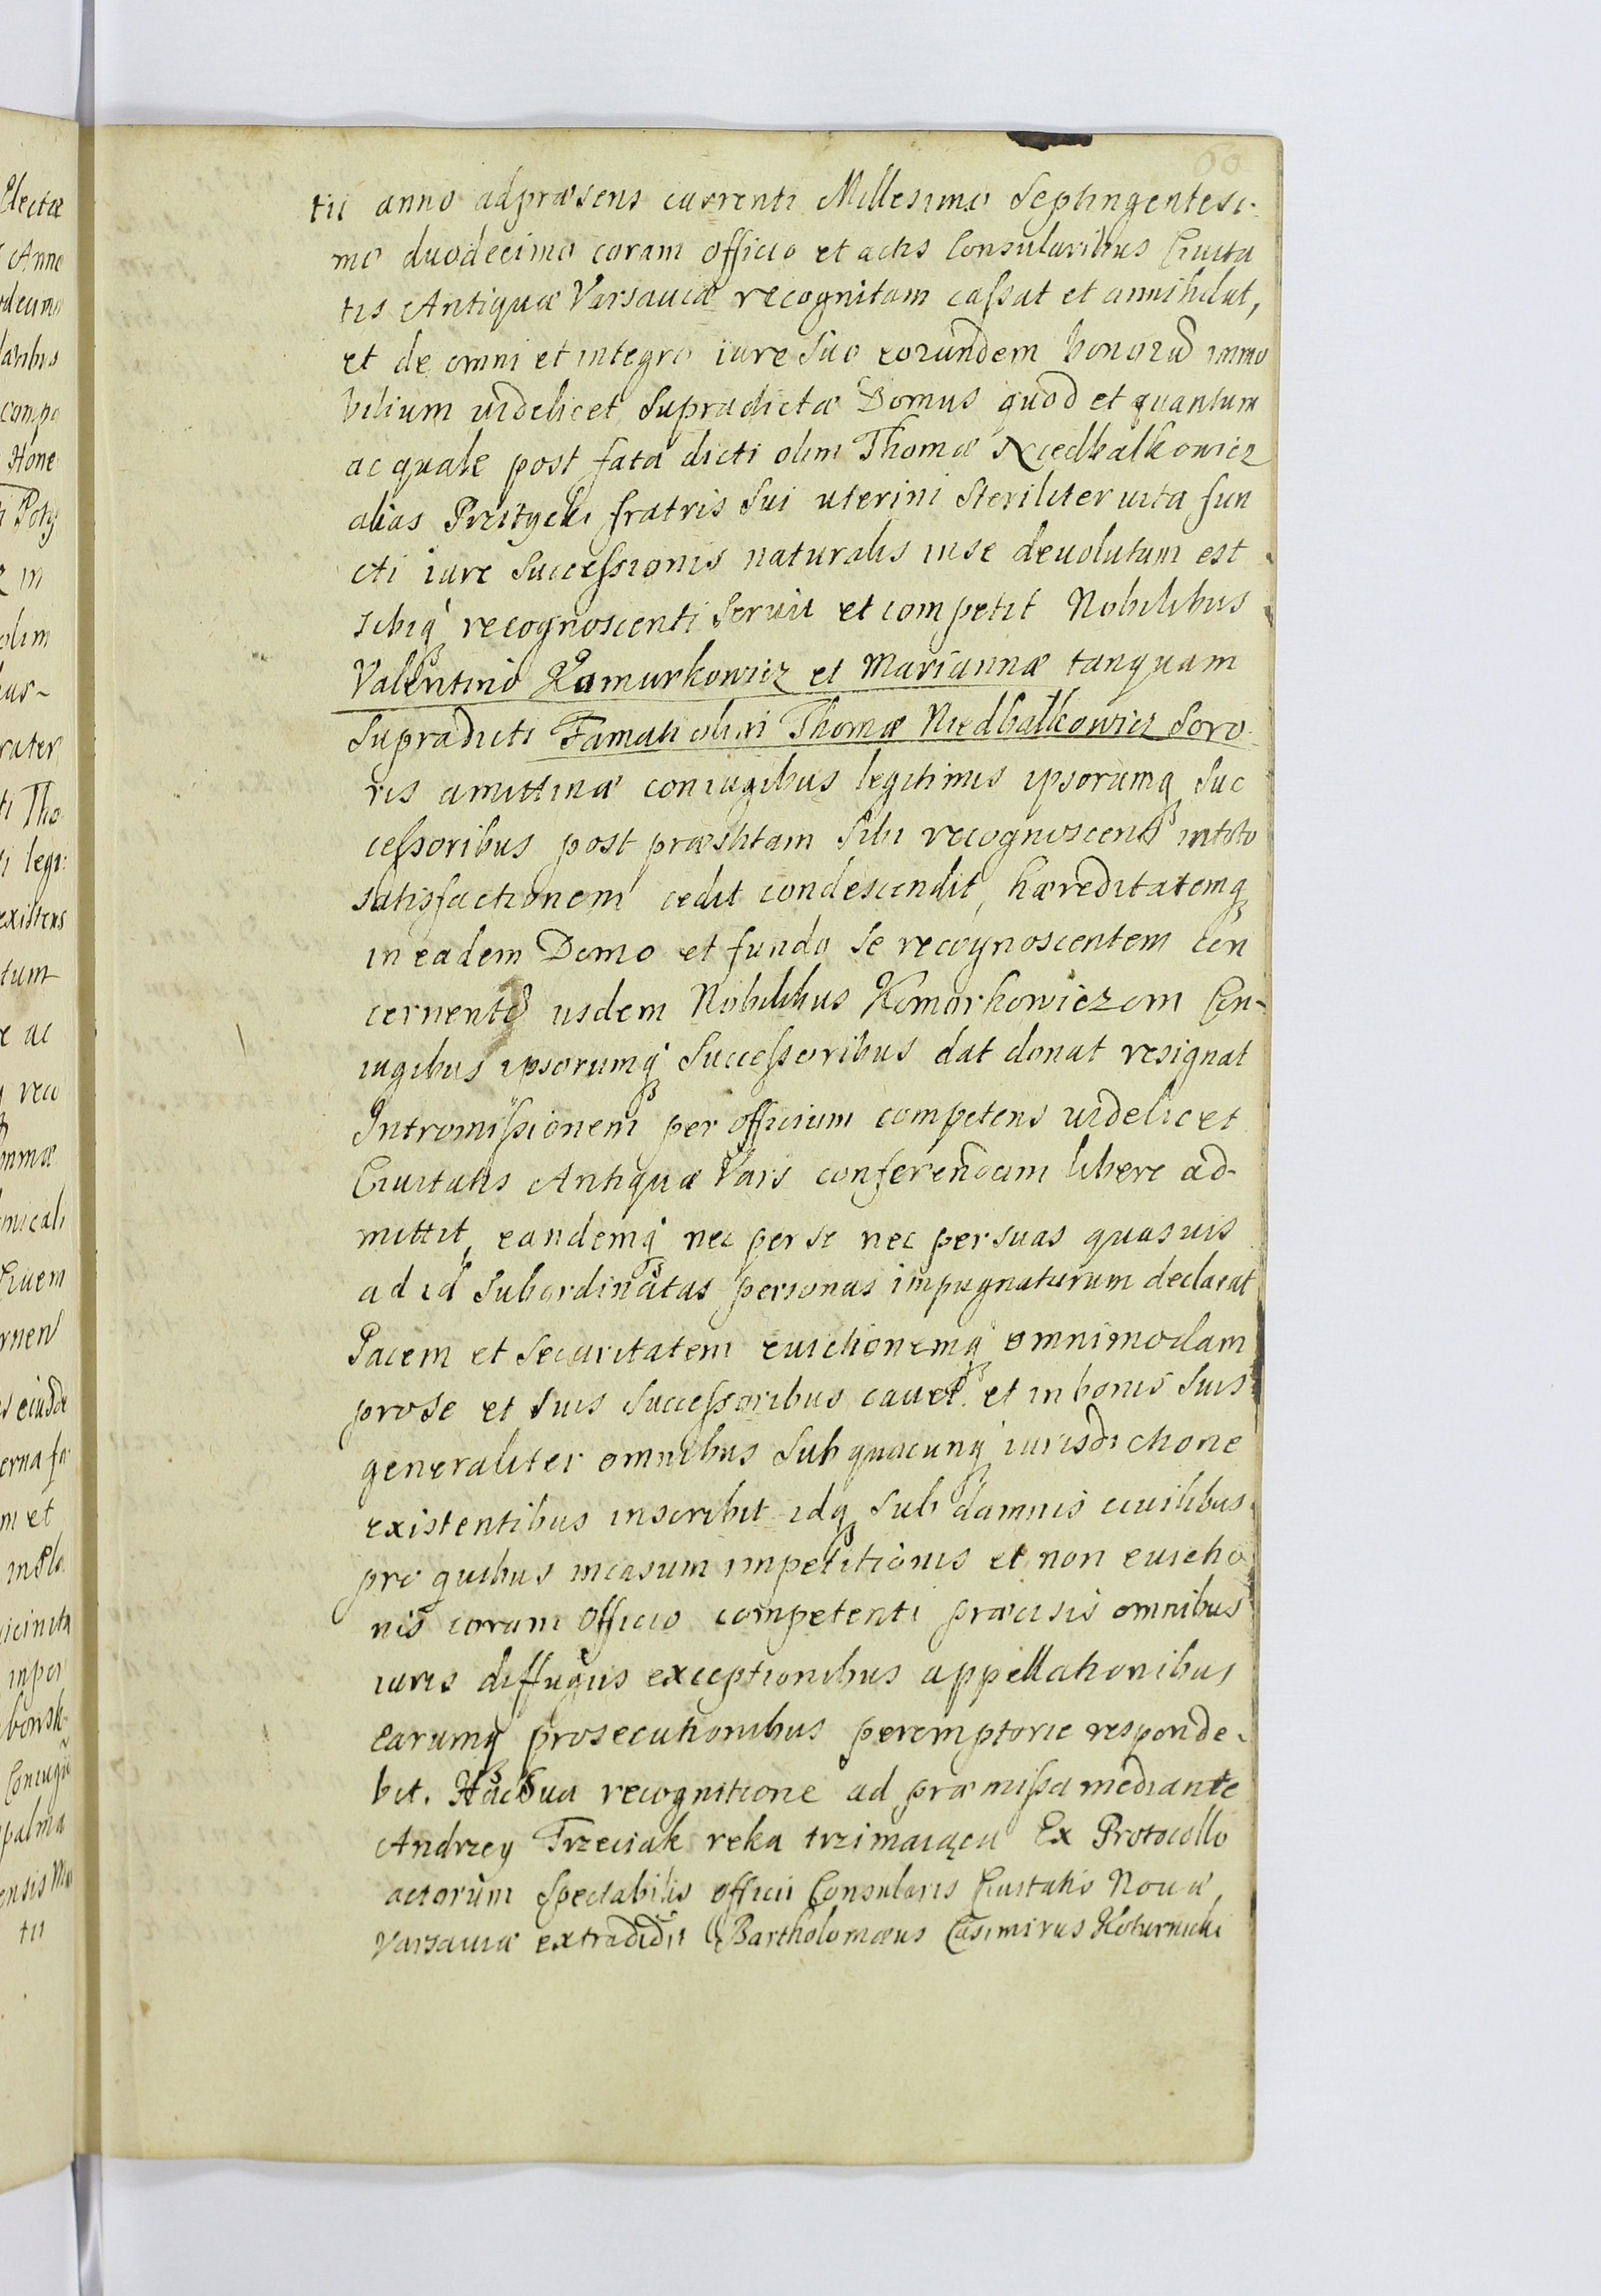 60
tii anno adpræsens currenti Millesimo Septingentesi-
mo duodecimo coram officio et actis Consularibus Ciuita
tis Antiquæ Varsauiæ recognitam caſsat et annihilat,
et de omni et integro iure Suo eorundem bonorũ immo
bilium uidelicet Supradictæ Domus quod et quantum
ac quale post fata dicti olim Thomæ Niedbalkowicz
alias Przitycki fratris Sui uterini Steriliter uita fun
cti iure Succeſsionis naturalis inse deuolutum est
sibiq recognoscenti Seruit et competit Nobilibus
Valentino Komurkowicz et Mariannæ tanquam
Supradicti Famati olim Thomæ Niedbalkowicz Soro
ris amittinæ coniugibus legitimis ipsorumq Suc
ceſsoribus post præstitam Sibi recognoscenti intoto
satisfactionem cedit condescendit, hæreditatemq
in eadem Domo et fundo Se recognoscentem con
cernentẽ iisdem Nobilibus Komorkowiczom Con-
iugibus ipsorumq Succeſsoribus dat donat resignat
Intromiſsionem per officium competens uidelicet
Ciuitatis Antiquæ Vars conferendam libere ad-
mittit, eandemq nec per se nec per suas quasuis
ad id Subordinatas personas impugnaturum declarat
Pacem et Securitatem euictionemq omnimodam
prose et Suis Succeſsoribus cauet. et in bonis Suis
generaliter omnibus Sub quacunq iurisdictione
existentibus inscribit idq Sub damnis ciuilibus
pro quibus incasum impetitionis et non euictio
nis coram Officio competenti præcisis omnibus
iuris diffugiis exceptionibus appellationibus
earumq prosecutionibus peremptorie responde-
bit. Hac Sua recognitione ad præmiſsa mediante
Andrzey Trzeciak reka trzimaiącą Ex Protocollo
actorum Spectabilis officii Consularis Ciuitatis Nouæ
Varsauiæ extradidit Bartholomæus Casimirus Koturnicki